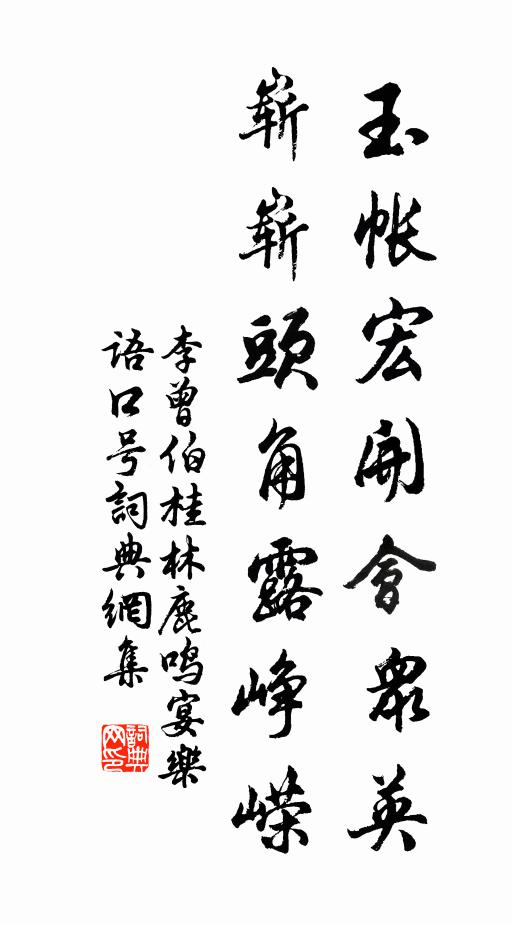 玉帐宏開會眾英
嶄嶄頭角露峥嶸
李曾伯桂林鹿鸣宴樂
语口号詞典網集
詞典网印